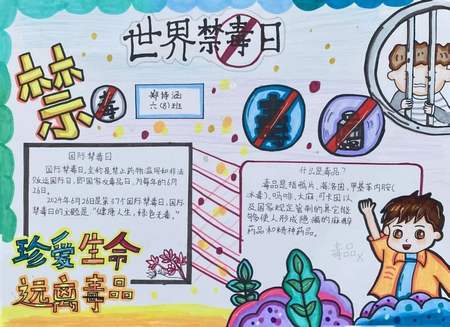 世界禁毒日
禁
毒
郑诗涵
六(8)班
毒
国际禁毒日
国际禁毒日,全称是禁止药物滥用和非法
贩运国际日,即国家反毒品日,为每年的6月
26日。
2024年6月26日是第37个国际禁毒日,国际
禁毒日的主题是:“健康人生,绿色无毒。”
什么是毒品?
毒品是指鸦片、海洛因、甲基苯丙胺(
冰毒)、吗啡、大麻、可卡因以
及国家规定管制的其它能
够使人形成瘾癖的麻醉
药品和精神药品。
毒品×
珍爱生命
远离毒品